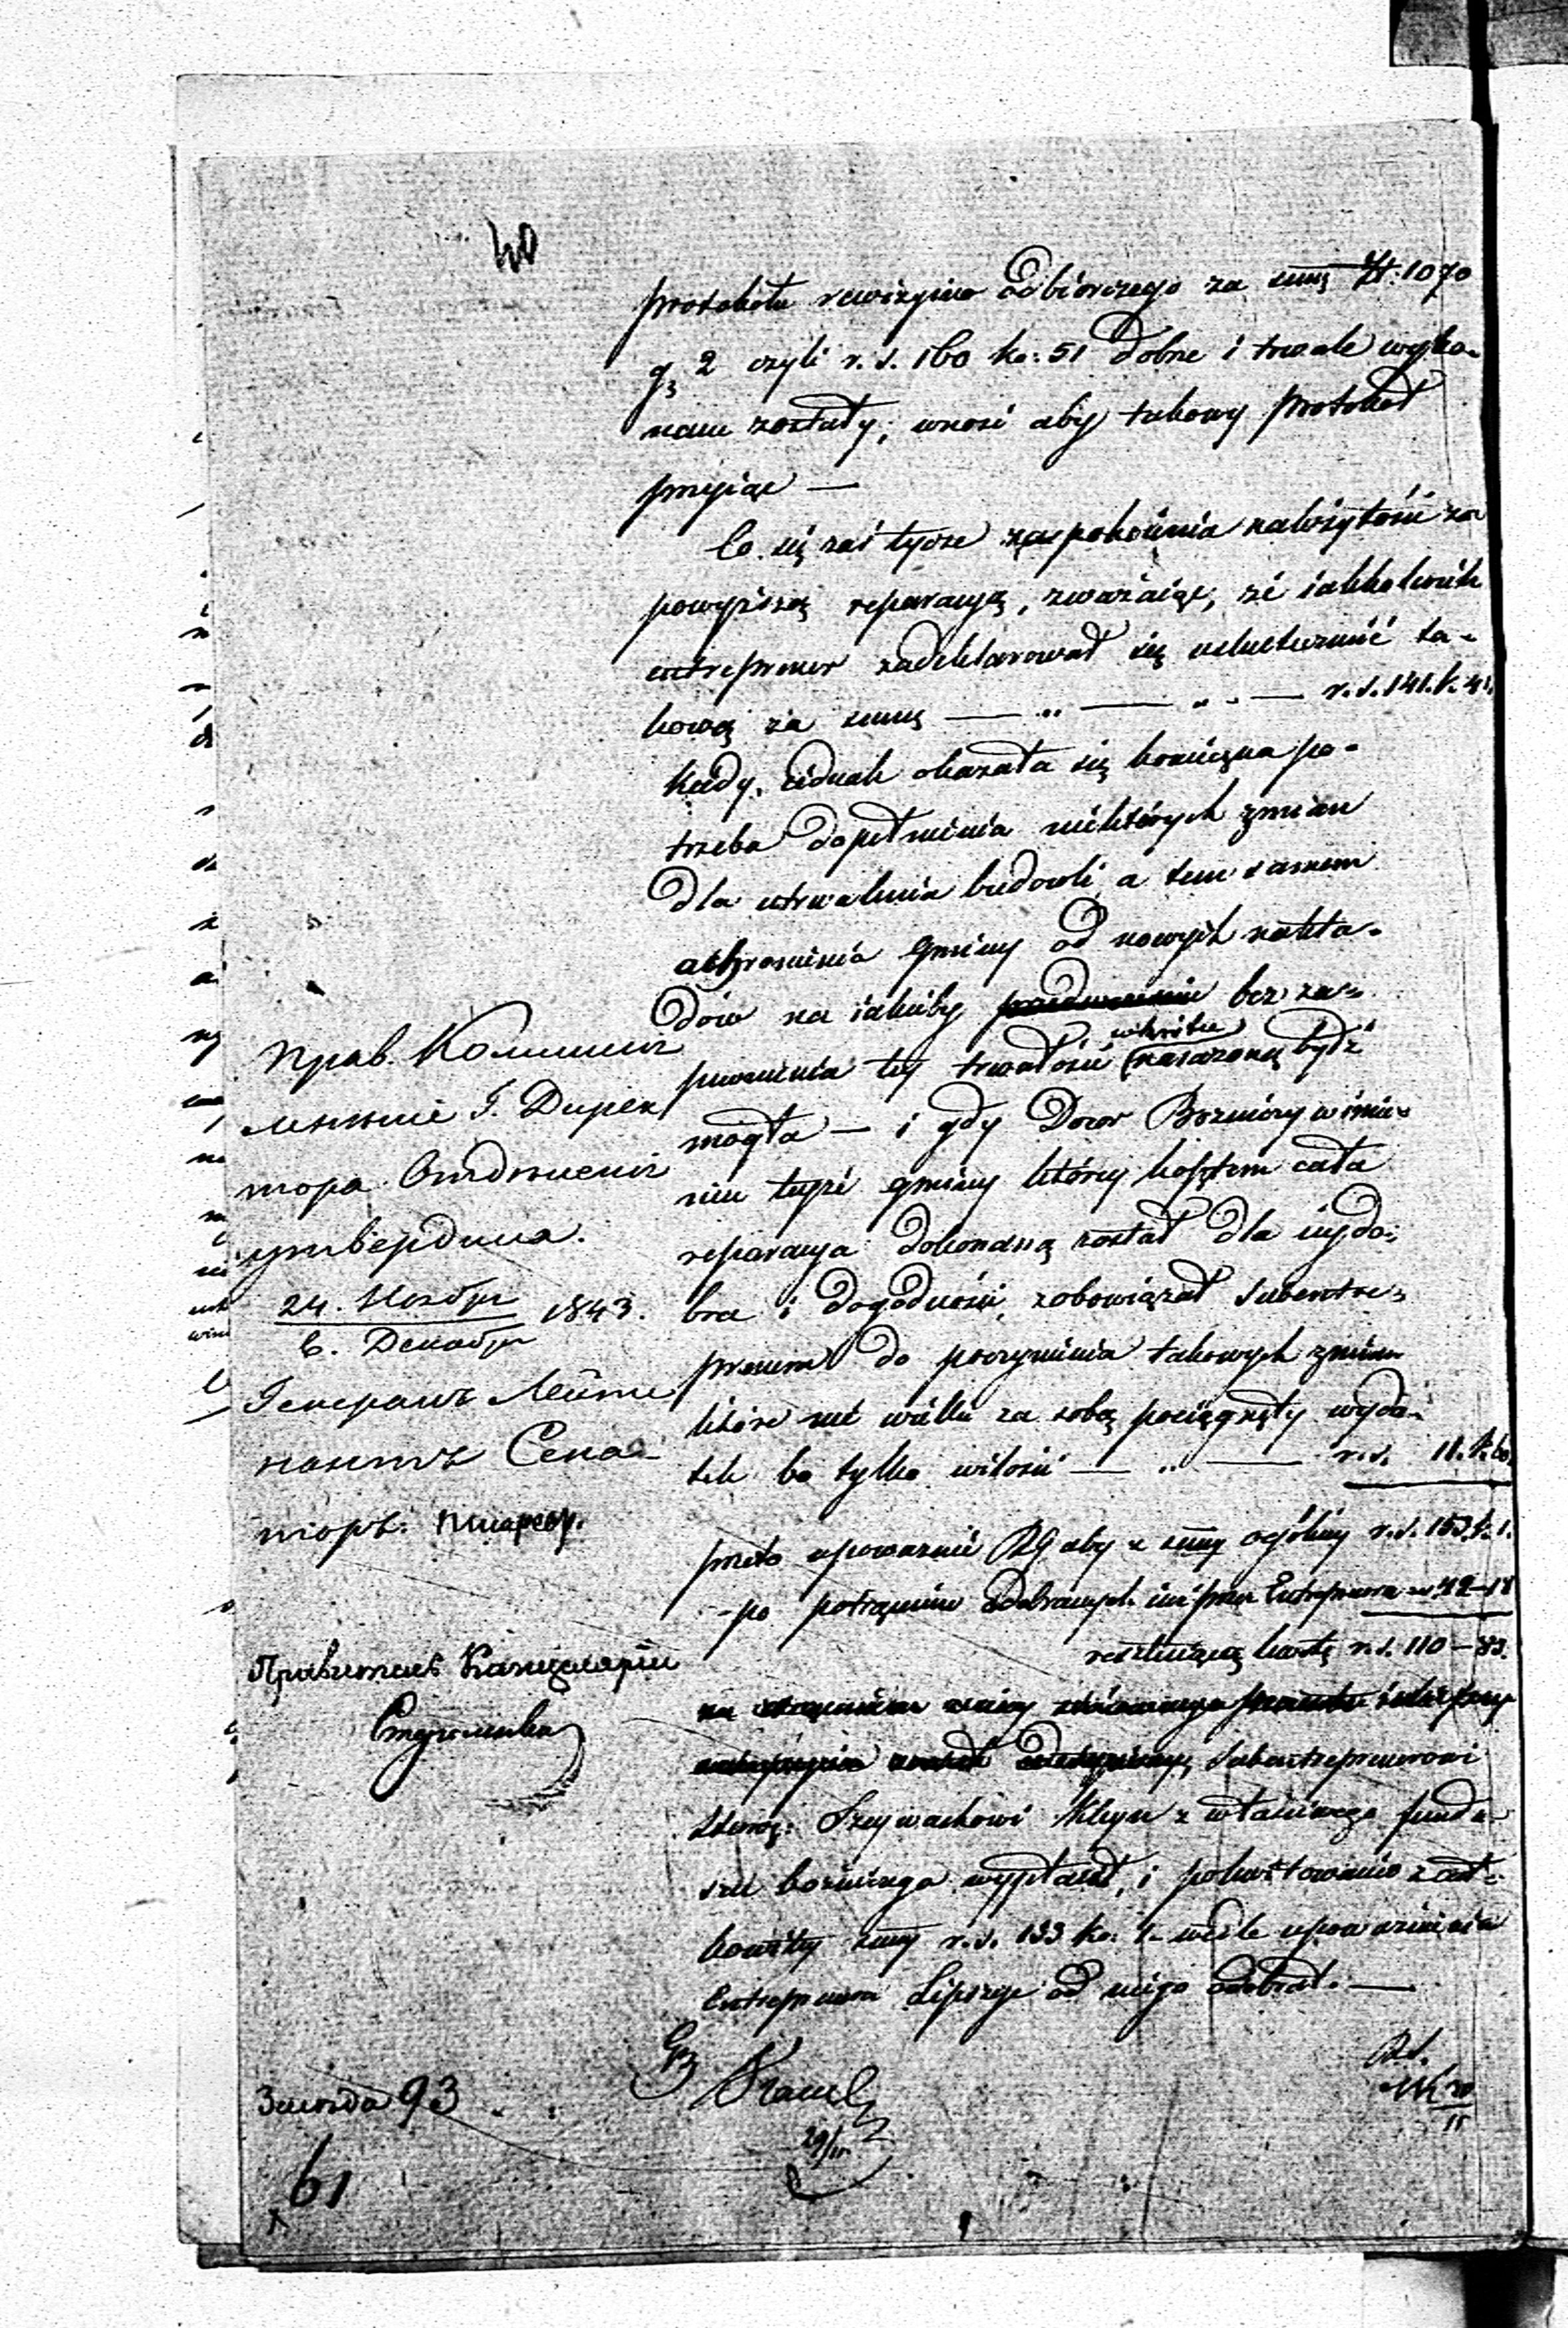 40
protokółu rewizyino odbiorczego za summę Zł. 1070
g. 2 czyli r. s. 160 ko: 51 dobrze i trwale wyko-
nane zostały; wnosi aby takowy protokół
przyiąć —
Co się zaś tycze zaspokoienia należytości za
powyższą reparacyą, zważaiąc, że iakkolwiek
entreprener zadeklarował się uskutecznić ta-
kową za summę — „ — „ — r. s. 141. k. 41.
kiedy iednak okazała się konieczna po-
trzeba dopełnienia niektórych zmian
dla utrwalenia budowli a tem samem
ochronienia gminy od nowych nakła-
dów na iakieby bez za-
pewnienia tey trwałości wkrótce narażoną bydź
mogła — i gdy Dozor Bozniczy w imie-
niu teyże gminy którey kosztem cała
reparacya dokonaną został dla iey do-
bra i dogodności, zobowiązał Subentre-
prenera do poczynienia takowych zmian
które nie wielki za sobą pociągnęły wyda-
tek bo tylko w ilości — „ — r. s. 11. k. 60.
przeto upoważnić RG aby z summy ogólney r. s. 153. k. 1.
po potrąceniu odebranych iuż przez Entreprenera r. s. 42—18
resztuiącą kwotę r. s. 110—83.
Subentreprenerowi
Staroz: Szeywachowi Kleyn z właściwego fundu-
szu boźniczego wypłacił, i pokwitowanie z cał-
kowitey summy r. s. 153 ko. 1. wedle upoważnienia
Entreprenera Lipszyc od niego odebrał. —
Прав. Коммисія
мнѣніе Г. Дирек
тора Отдѣленія
утвердила.
24. Ноября
6. Декабря 1843.
Генералъ Лейте
нантъ Сена-
торъ: Писарев.
Правитель Канцеляріи
93
29/
61